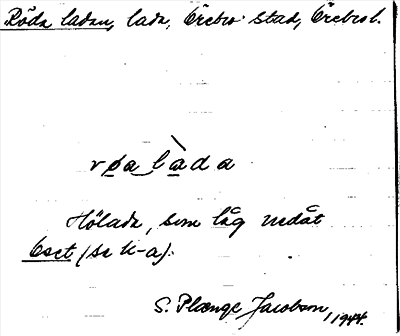 Röda ladan, lada, Örebro stad, Örebro l.
røa làda
Hölada, som låg nedåt
(se k-a).
S. Plænge Jacobson, 1944.